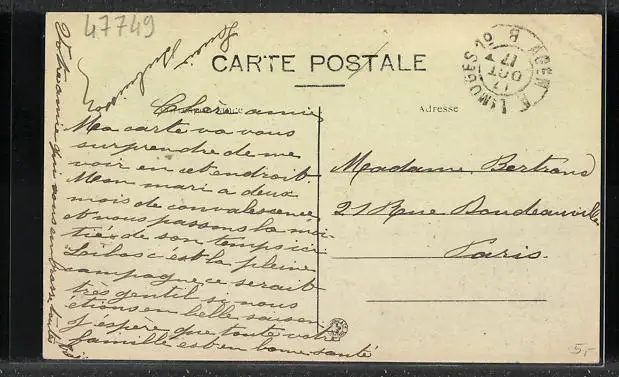 47749
CARTE POSTALE
Adresse
AGEN A LIMOGES 1o
B
17
OCT
17
Chère amie
Ma carte va vous
surprendre de me
voir en cet endroit.
Mon mari a deux
mois de convalescence
et nous passons la moi-
tiée de son temps ici
c'est la pleine
campagne ce serait
très gentil si nous
étions en belle saison
J'espère que toute votre
famille est en bonne santé
Votre amie qui vous embrasse
Madame Bertrand
21 Rue Boudeauville
Paris.
5,-